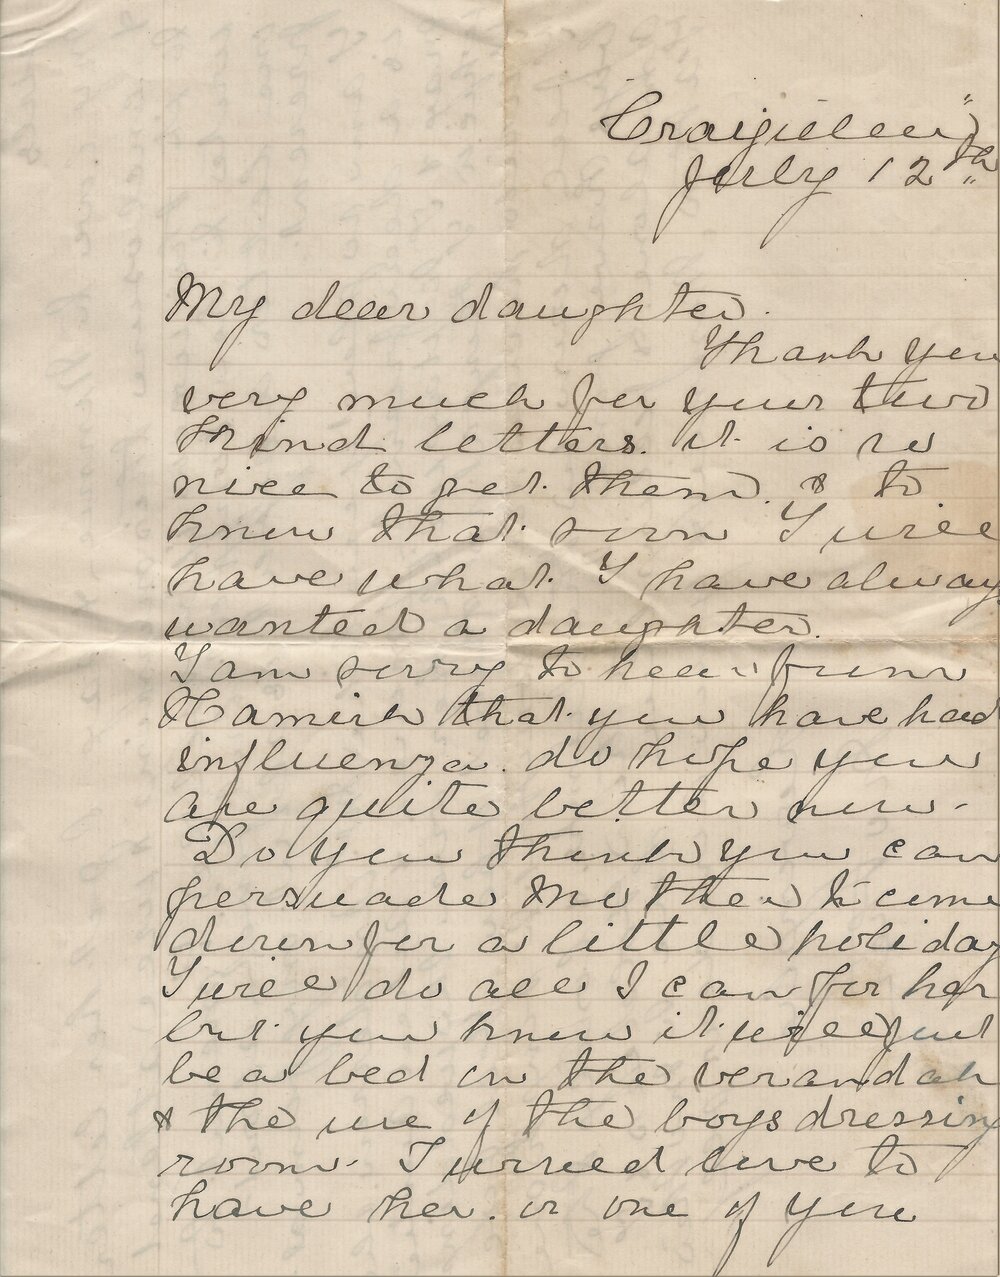 Craigielea
July 12th
My dear daughter.
Thank you
very much for your two
kind letters. it is so
nice to get them. & to
know that soon I will
have what I have always
wanted a daughter.
I am sorry to hear from
Hamish that you have had
influenza. do hope you
are quite better now.
Do you think you can
persuade Mother to come
down for a little holiday
I will do all I can for her
but you know it will just
be a bed on the verandah
& the use of the boys dressing
room. I would love to
have her. or one of you